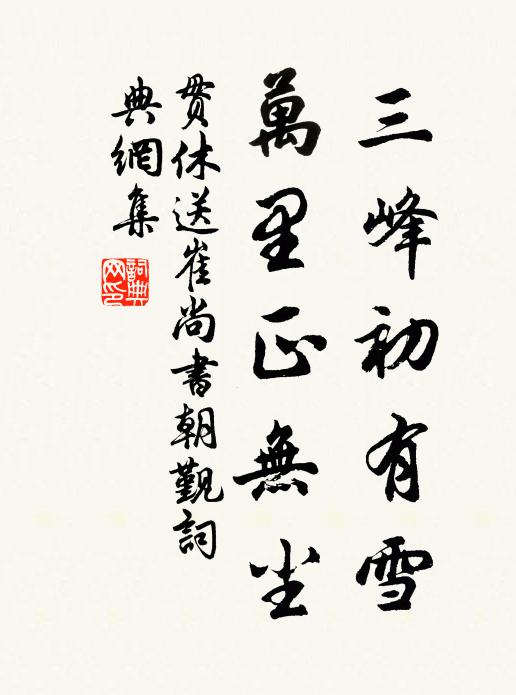 三峰初有雪
萬里正無尘
贯休送崔尚書朝觐詞
典網集
詞典
网印